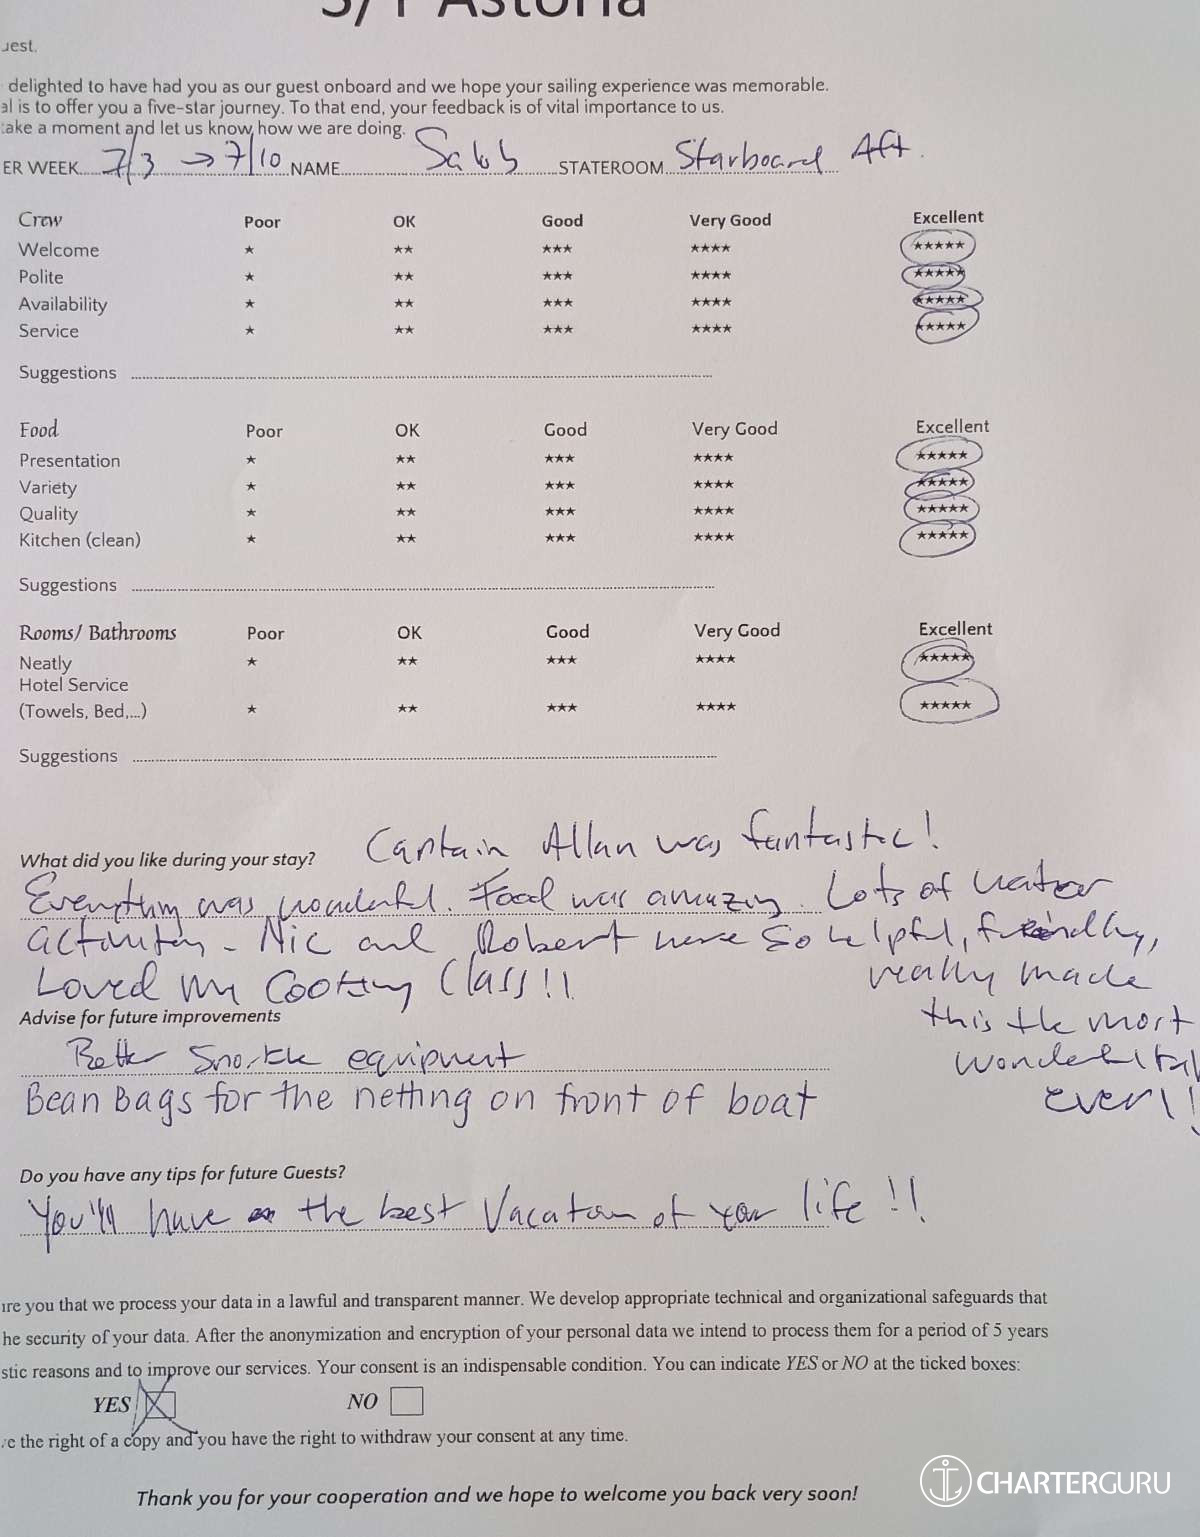 S/Y Astoria
uest.
delighted to have had you as our guest onboard and we hope your sailing experience was memorable.
al is to offer you a five-star journey. To that end, your feedback is of vital importance to us.
take a moment and let us know how we are doing.
ER WEEK 7/3 → 7/10 NAME STATEROOM Starboard Aft
Crew Poor OK Good Very Good Excellent
Welcome ★ ★★ ★★★ ★★★★ ★★★★★
Polite ★ ★★ ★★★ ★★★★ ★★★★★
Availability ★ ★★ ★★★ ★★★★ ★★★★★
Service ★ ★★ ★★★ ★★★★ ★★★★★
Suggestions
Food Poor OK Good Very Good Excellent
Presentation ★ ★★ ★★★ ★★★★ ★★★★★
Variety ★ ★★ ★★★ ★★★★ ★★★★★
Quality ★ ★★ ★★★ ★★★★ ★★★★★
Kitchen (clean) ★ ★★ ★★★ ★★★★ ★★★★★
Suggestions
Rooms/ Bathrooms Poor OK Good Very Good Excellent
Neatly ★ ★★ ★★★ ★★★★ ★★★★★
Hotel Service
(Towels, Bed,...) ★ ★★ ★★★ ★★★★ ★★★★★
Suggestions
What did you like during your stay? Captain Allan was fantastic!
Everything was wonderful. Food was amazing. Lots of water
activities - Nic and Robert were so helpful, friendly,
Loved my Cooking Class!! really made
this the most
wonderful
ever!!
Advise for future improvements
Better Snorkle equipment
Bean Bags for the netting on front of boat
Do you have any tips for future Guests?
You'll have the best Vacation of your life!!
ure you that we process your data in a lawful and transparent manner. We develop appropriate technical and organizational safeguards that
he security of your data. After the anonymization and encryption of your personal data we intend to process them for a period of 5 years
stic reasons and to improve our services. Your consent is an indispensable condition. You can indicate YES or NO at the ticked boxes:
YES X NO
ve the right of a copy and you have the right to withdraw your consent at any time.
Thank you for your cooperation and we hope to welcome you back very soon!
CHARTERGURU